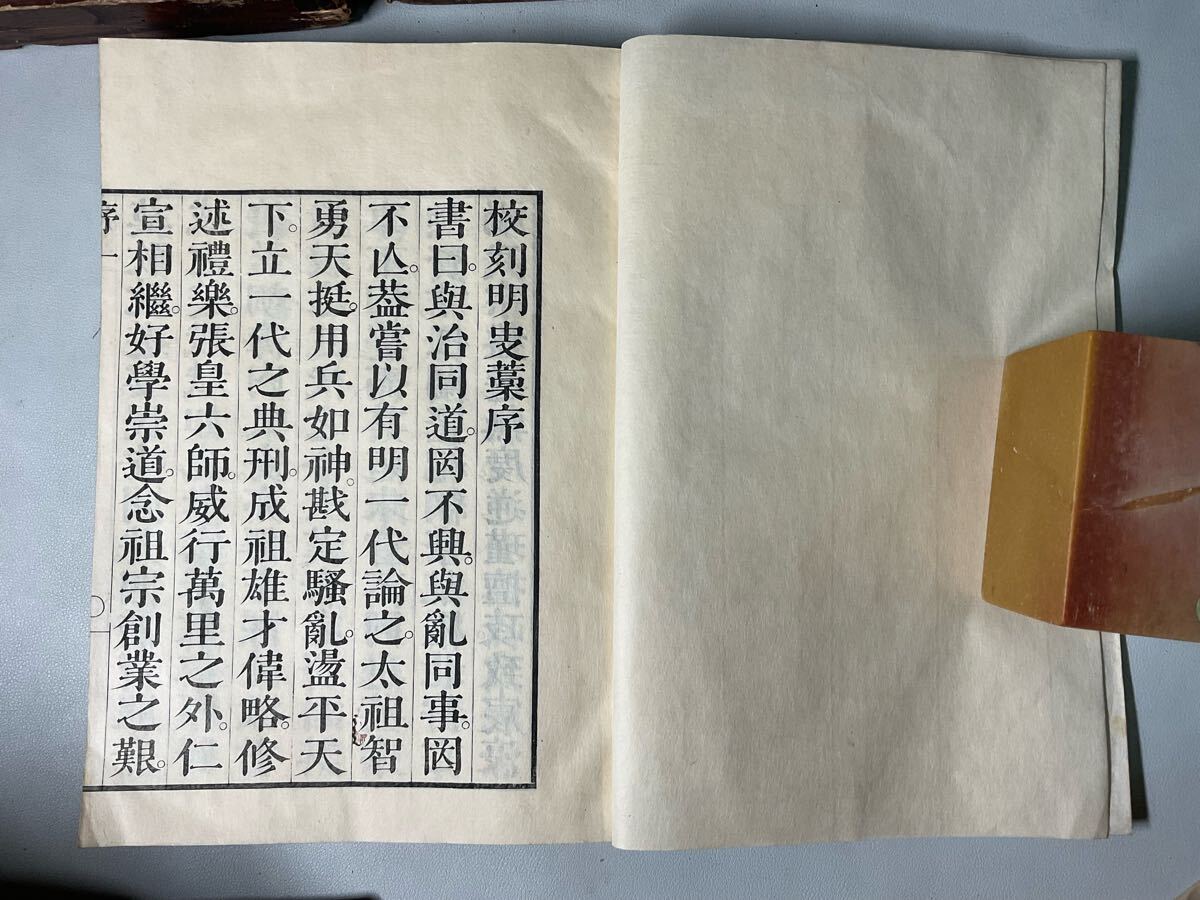 校刻明史藁序
書曰。與治同道。罔不興。與亂同事。罔
不亾。葢嘗以有明一代論之。太祖智
勇天挺。用兵如神。戡定騷亂。盪平天
下。立一代之典刑。成祖雄才偉略。修
述禮樂。張皇六師。威行萬里之外。仁
宣相繼。好學崇道。念祖宗創業之艱。
序 一